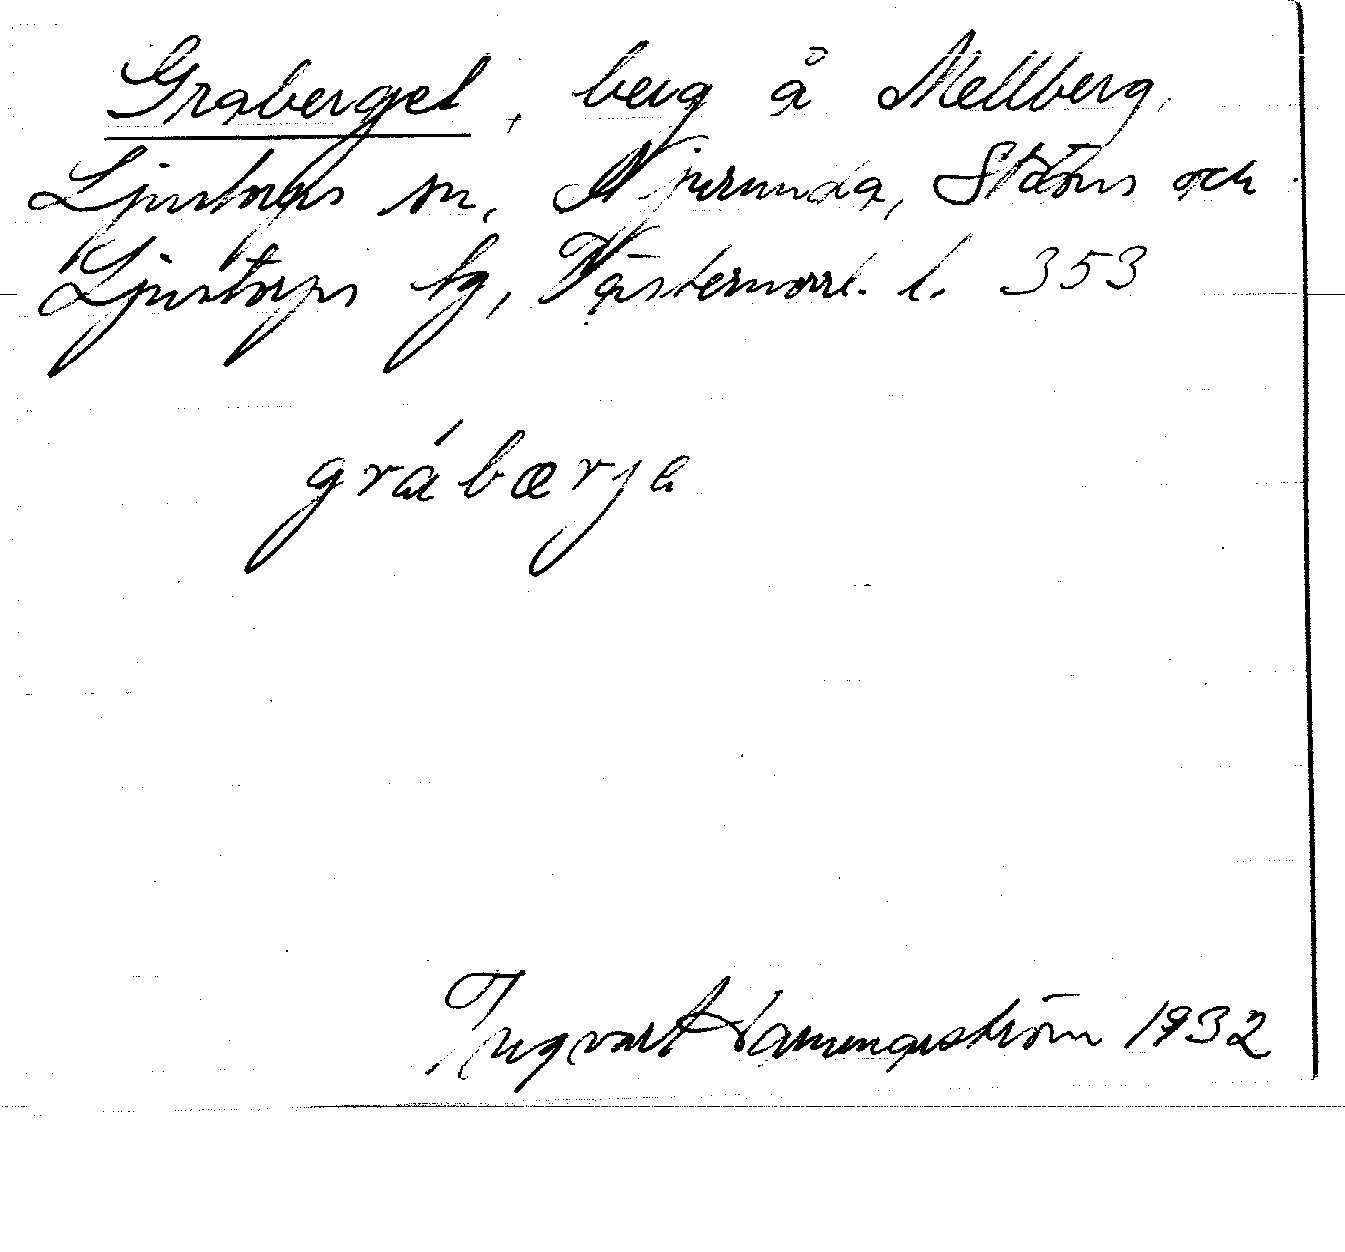 Graberget, berg å Mellberg,
Ljustorps sn, Njurunda, Stöns och
Ljustorps tg, Västernorrl. l. 353
grábærje
Ingvart Hammarström 1932